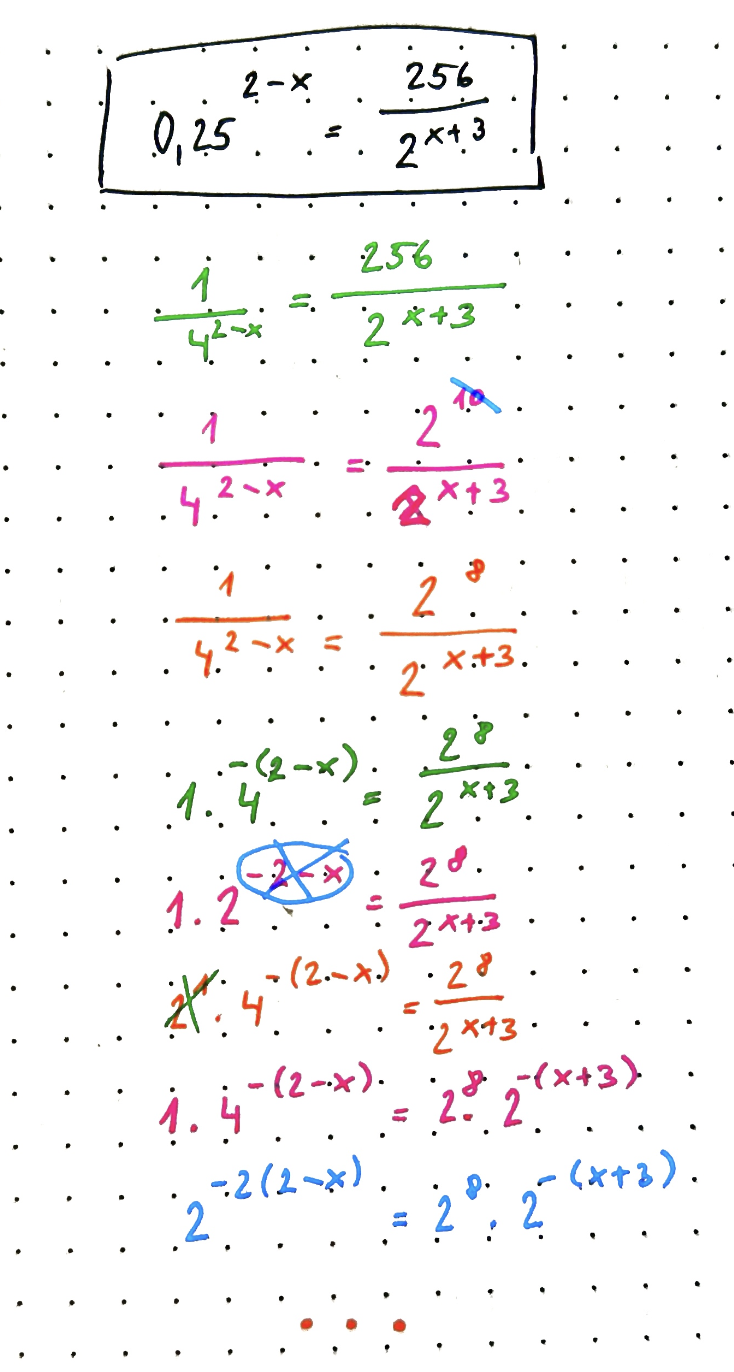 0,25^{2-x} = \frac{256}{2^{x+3}}
\frac{1}{4^{2-x}} = \frac{256}{2^{x+3}}
\frac{1}{4^{2-x}} = \frac{2^{10}}{2^{x+3}}
\frac{1}{4^{2-x}} = \frac{2^{8}}{2^{x+3}}
1 \cdot 4^{-(2-x)} = \frac{2^{8}}{2^{x+3}}
1 \cdot 2^{-2-x} = \frac{2^{8}}{2^{x+3}}
2^{1} \cdot 4^{-(2-x)} = \frac{2^{8}}{2^{x+3}}
1 \cdot 4^{-(2-x)} = 2^{8} \cdot 2^{-(x+3)}
2^{-2(2-x)} = 2^{8} \cdot 2^{-(x+3)}
...